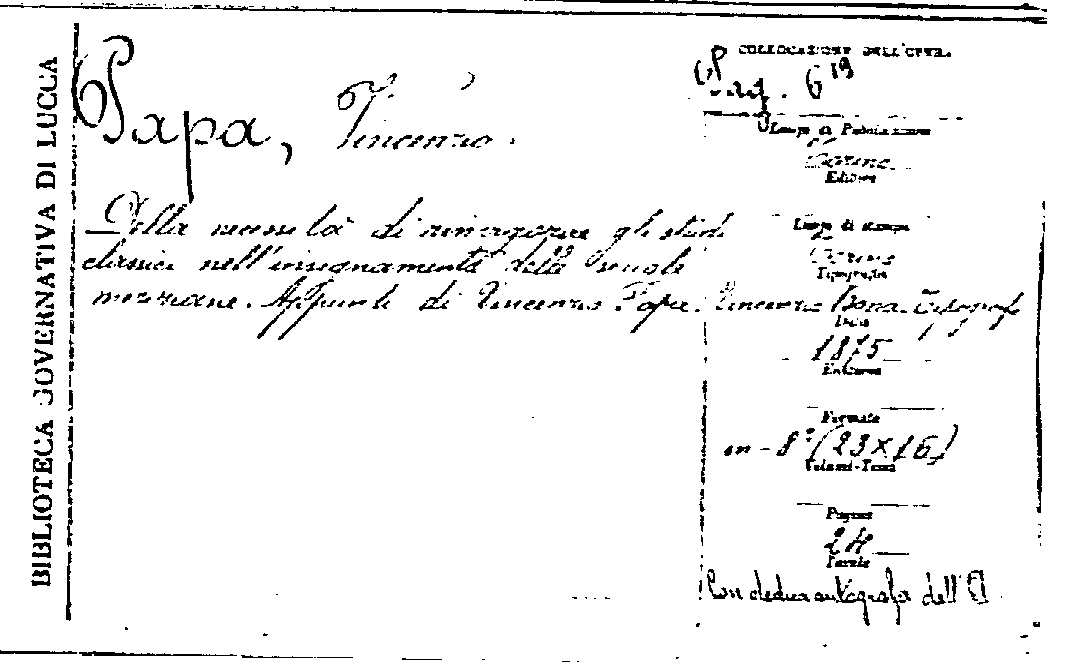 BIBLIOTECA GOVERNATIVA DI LUCCA
Papa, Vincenzo.
Della necessità di rinvigorire gli studi
classici nell'insegnamento delle scuole
mezzane. Appunti di Vincenzo Papa.
COLLOCAZIONE DELL'OPERA
6 19
Luogo di Pubblicazione
Torino
Editore
Luogo di stampa
Torino
Tipografia
Vincenzo Bona Tipografo
Data
1875
Edizione
Formato
in-8° (23×16)
Volumi-Tomi
Pagine
24
Tavole
Con dedica autografa dell'A.